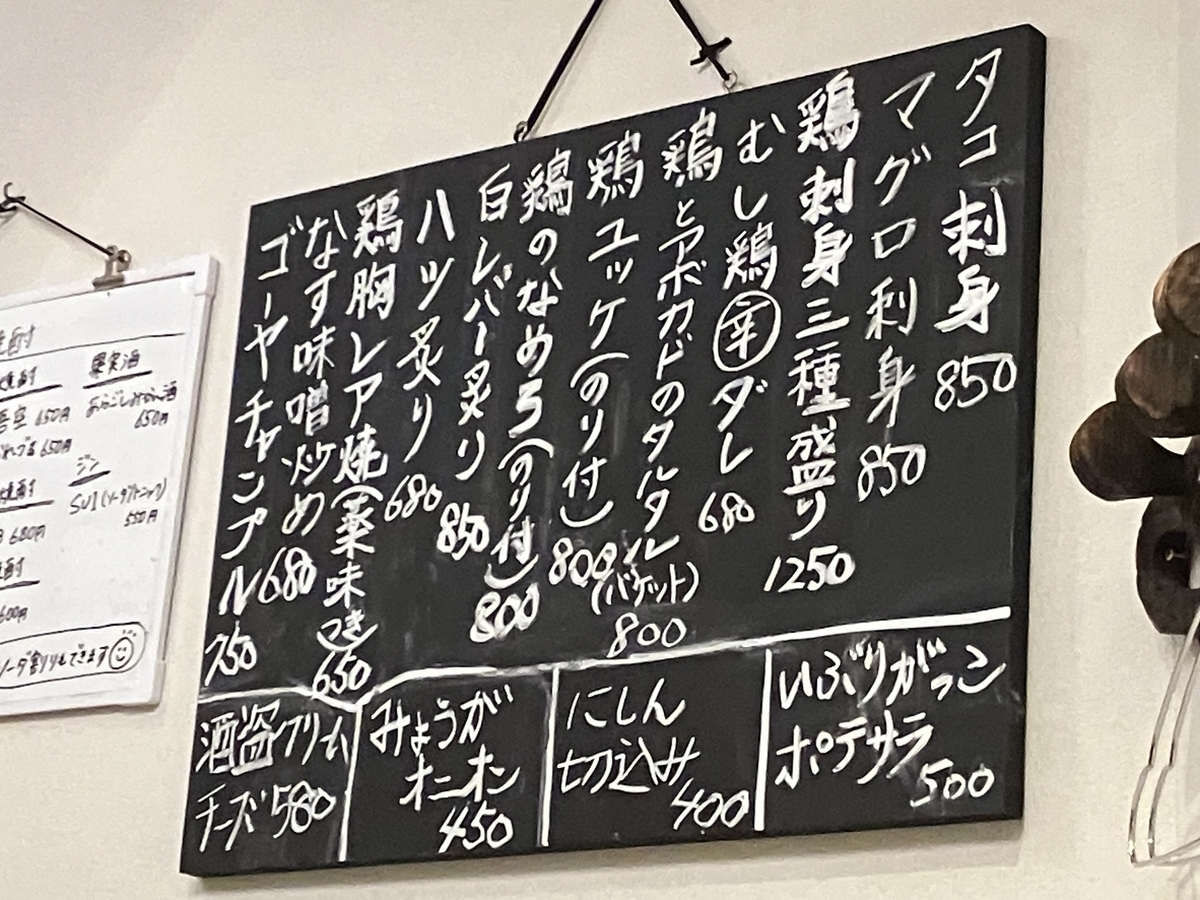 タコ刺身 850
マグロ刺身 850
鶏刺身三種盛り 1250
むし鶏 辛ダレ 680
鶏とアボカドのタルタル(バケット) 800
鶏ユッケ(のり付) 800
鶏のなめろう(のり付) 800
白レバー炙り 850
ハツ炙り 680
鶏胸レア焼(薬味つき) 650
なす味噌炒め 680
ゴーヤチャンプル 750
いぶりがっこ
ポテサラ
500
にしん
切込み
400
みょうが
オニオン
450
酒盗クリーム
チーズ 580
果実酒
あらごしみかん酒
650円
ジン
SUI(ソーダ/トニック)
550円
650円
650円
680円
600円
ソーダ割りもできます